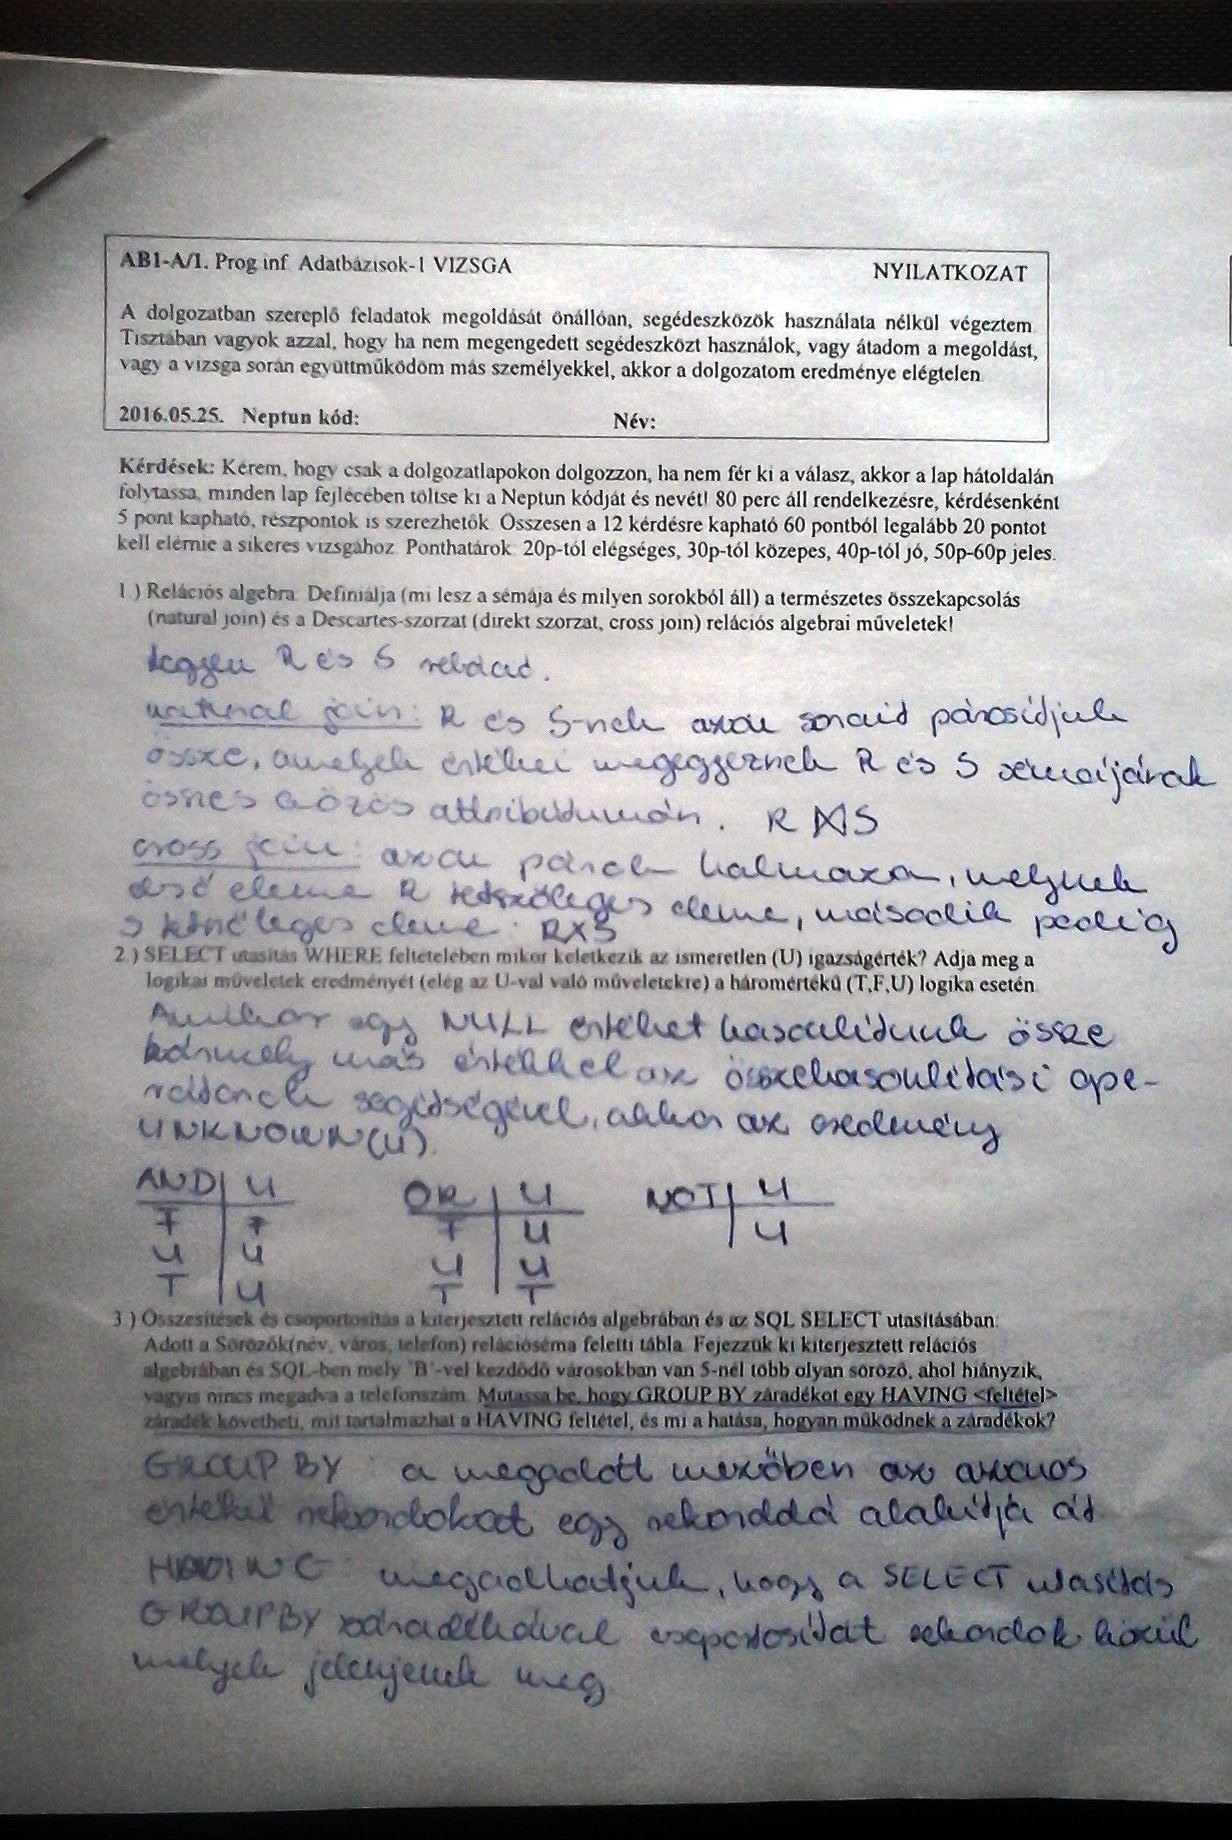 AB1-A/1. Prog.inf. Adatbázisok-1 VIZSGA NYILATKOZAT
A dolgozatban szereplő feladatok megoldását önállóan, segédeszközök használata nélkül végeztem.
Tisztában vagyok azzal, hogy ha nem megengedett segédeszközt használok, vagy átadom a megoldást,
vagy a vizsga során együttműködöm más személyekkel, akkor a dolgozatom eredménye elégtelen.
2016.05.25. Neptun kód: Név:
Kérdések: Kérem, hogy csak a dolgozatlapokon dolgozzon, ha nem fér ki a válasz, akkor a lap hátoldalán
folytassa, minden lap fejlécében töltse ki a Neptun kódját és nevét! 80 perc áll rendelkezésre, kérdésenként
5 pont kapható, részpontok is szerezhetők. Összesen a 12 kérdésre kapható 60 pontból legalább 20 pontot
kell elérnie a sikeres vizsgához. Ponthatárok: 20p-tól elégséges, 30p-tól közepes, 40p-tól jó, 50p-60p jeles.
1.) Relációs algebra: Definiálja (mi lesz a sémája és milyen sorokból áll) a természetes összekapcsolás
(natural join) és a Descartes-szorzat (direkt szorzat, cross join) relációs algebrai műveletek!
Legyen R és S reláció.
natural join: R és S-nek azon sorait párosítjuk
össze, amelyek értékei megegyeznek R és S sémájának
összes közös attribútumán. R ⋈ S
cross join: azon párok halmaza, melynek
első eleme R tetszőleges eleme, második pedig
S tetszőleges eleme: RXS
2.) SELECT utasítás WHERE feltételében mikor keletkezik az ismeretlen (U) igazságérték? Adja meg a
logikai műveletek eredményét (elég az U-val való műveletekre) a háromértékű (T,F,U) logika esetén.
Amikor egy NULL értéket hasonlítunk össze
bármely más értékkel az összehasonlítási ope-
rátorok segítségével, akkor az eredmény
UNKNOWN(U).
AND U OR U NOT U
F F F U U
U U U U
T U T T
3.) Összesítések és csoportosítás a kiterjesztett relációs algebrában és az SQL SELECT utasításában:
Adott a Sörözők(név, város, telefon) relációséma feletti tábla. Fejezzük ki kiterjesztett relációs
algebrában és SQL-ben mely 'B'-vel kezdődő városokban van 5-nél több olyan söröző, ahol hiányzik,
vagyis nincs megadva a telefonszám. Mutassa be, hogy GROUP BY záradékot egy HAVING <feltétel>
záradék követheti, mit tartalmazhat a HAVING feltétel, és mi a hatása, hogyan működnek a záradékok?
GROUP BY: a megadott mezőben az azonos
értékű rekordokat egy rekorddá alakítja át
HAVING: megadhatjuk, hogy a SELECT utasítás
GROUP BY záradékával csoportosított rekordok közül
melyek jelenjenek meg